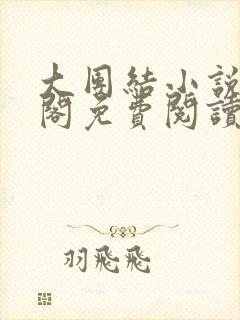 大團結小說
閣免費閱讀
羽飛飛